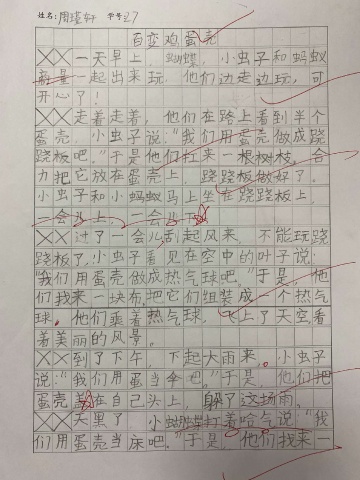 姓名:周瑾轩 学号27
百变鸡蛋壳
一天早上,蝴蝶,小虫子和蚂蚁
一起出来玩,他们边走边玩,可
开心了!
走着走着,他们在路上看到半个
蛋壳,小虫子说:“我们用蛋壳做成跷
跷板吧。”于是他们扛来一根树枝,合
力把它放在蛋壳上,跷跷板做好了。
小虫子和小蚂蚁马上坐在跷跷板上,
一会儿上,一会儿下
过了一会儿,刮起风来,不能玩跷
跷板了,小虫子看见在空中的叶子说:
“我们用蛋壳做成热气球吧,”于是,他
们找来一块布,把它们组装成一个热气
球。他们乘着热气球,飞上了天空,看
着美丽的风景。
到了下午,下起大雨来。小虫子
说:“我们用蛋当伞吧。”于是,他们把
蛋壳盖在自己头上,躲了这场雨。
天黑了,小蚂蚁打着哈气说:“我
们用蛋壳当床吧。”于是,他们找来一